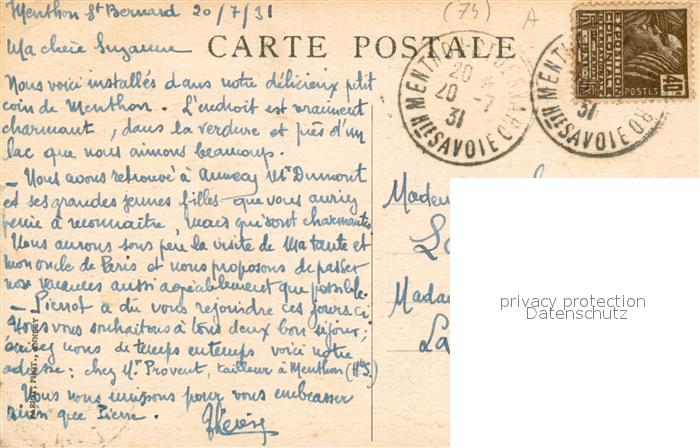 Menthon St Bernard 20/7/31
(74)
A
Ma chère Suzanne
CARTE POSTALE
Nous voici installés dans notre délicieux ptit
coin de Menthon. L'endroit est vraiment
charmant, dans la verdure et près d'un
lac que nous aimons beaucoup.
_ Nous avons retrouvé à Annecy Mr Dumont
et ses grandes jeunes filles que vous auriez
peine à reconnaître, mais qui sont charmantes
Nous aurons sous peu la visite de Ma tante et
mon oncle de Paris et nous proposons de passer
nos vacances aussi agréablement que possible.
_ Pierrot a dû vous rejoindre ces jours ci
Nous vous souhaitons à tous deux bon séjour,
écrivez nous de temps en temps voici notre
adresse : chez Mr Provent, tailleur à Menthon (Hte S.)
Nous nous unissons pour vous embrasser
ainsi que Pierre. Thérèse
MENTHON
20
20 -7
31
Hte SAVOIE
MENTHON
31
Hte SAVOIE
POSTES
40c
Madame
Madame
La
privacy protection
Datenschutz
PHOT., ANNECY